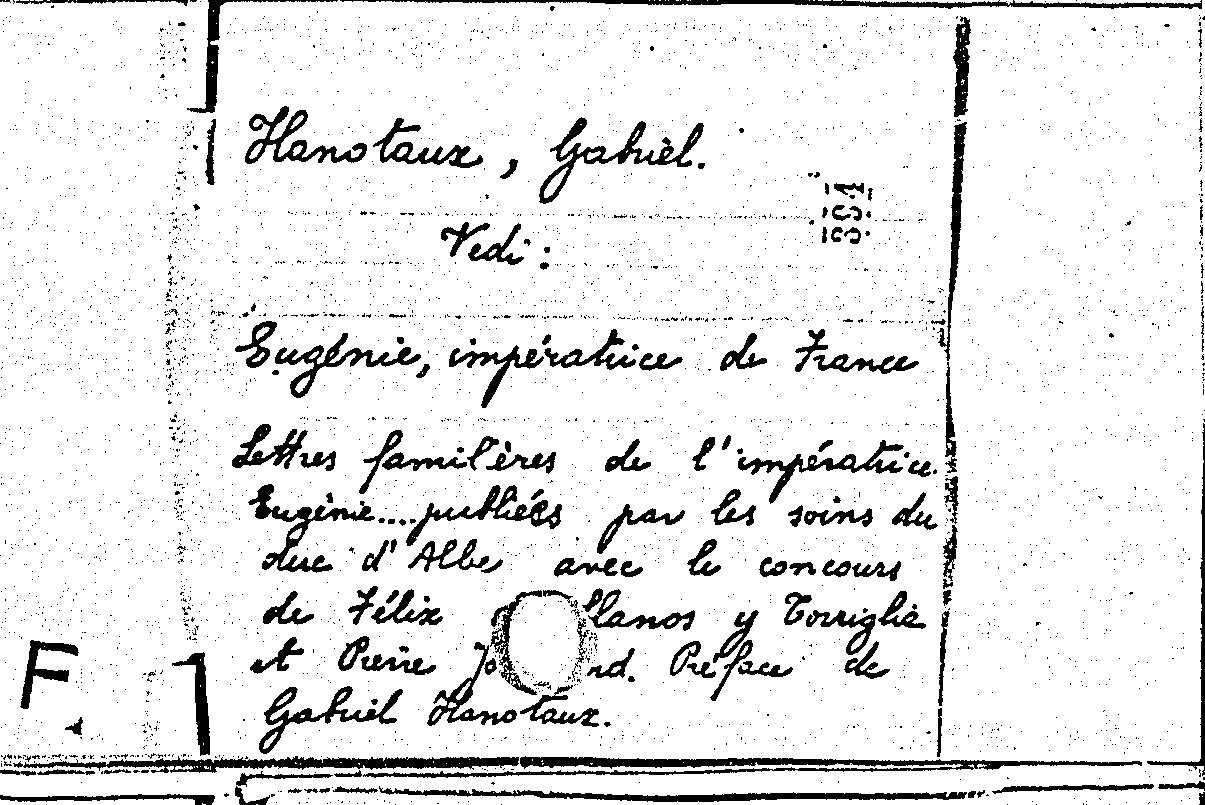 Hanotaux, Gabriel.
Vedi:
Eugénie, impératrice de France
Lettres familières de l'impératrice
Eugénie....publiées par les soins du
duc d'Albe avec le concours
de Félix llanos y Torriglia
et Pierre Jo rd. Préface de
Gabriel Hanotaux.
F